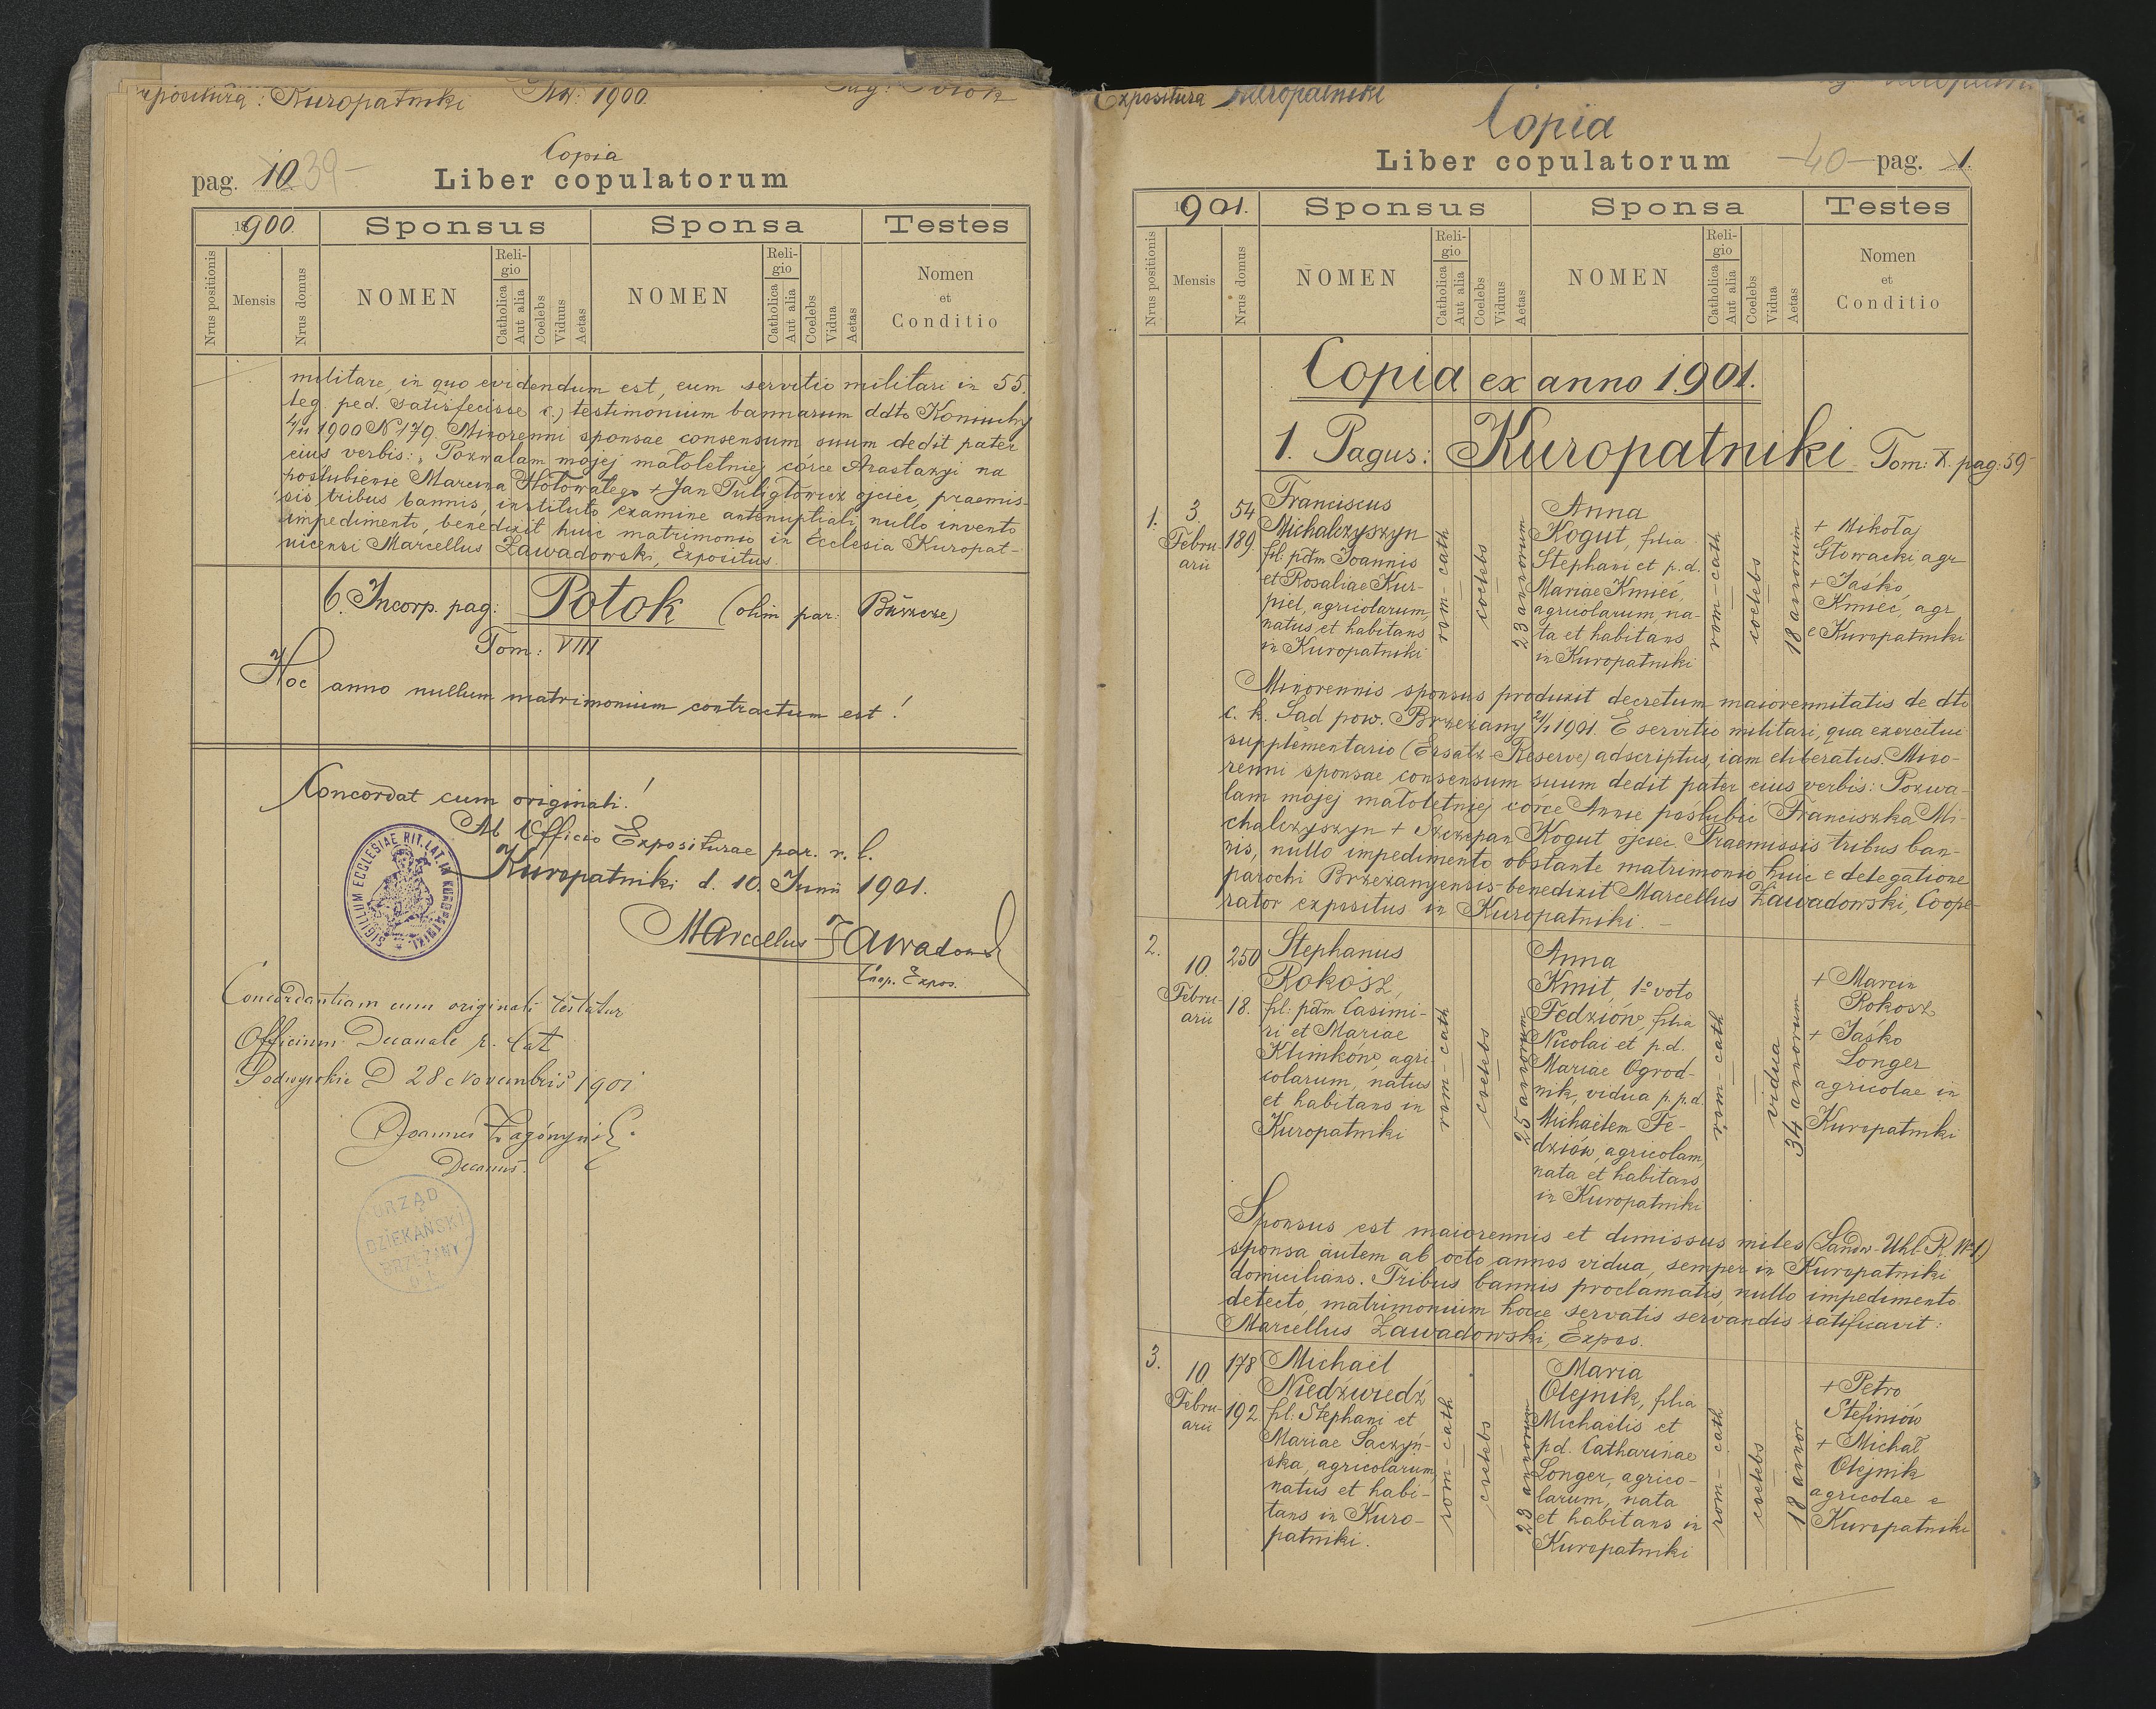 Expositura: Kuropatniki Ao: 1900. Pag: Potok
Copia
pag. 10 39-
Liber copulatorum
18900.
Sponsus
Sponsa
Testes
Nrus positionis
Mensis
Nrus domus
NOMEN
Religio
Catholica
Aut alia
Coelebs
Viduus
Aetas
NOMEN
Religio
Catholica
Aut alia
Coelebs
Vidua
Aetas
Nomen
et
Conditio
militare, in quo evidendum est, eum servitio militari in 55.
leg. ped. satisfecisse c.) testimonium bannarum ddto Koniuchy
4/11 1900 N 179. Minorenni sponsae consensum suum dedit pater
eius verbis: „Pozwalam mojej małoletniej córce Anastazyi na
poślubienie Marcina Hołowatego + Jan Tuligłowicz ojciec, praemis-
sis tribus bannis, instituto examine antenuptiali, nullo invento
impedimento, benedixit huic matrimonio in Ecclesia Kuropat-
nicensi Marcellus Zawadowski, Expositus.
6. Incorp. pag: Potok (olim par:
Tom: VIII
Hoc anno nullum matrimonium contractum est!
Concordat cum originali!
Ab Officio Expositurae par. r. l.
Kuropatniki d. 10. Junii 1901.
SIGILLUM ECCLESIAE RIT. LAT. IN KUROPATNIKI
Marcellus Zawadowski
Coop. Expos.
Concordantiam cum originali testatur
Officium Decanale r. lat
Podwysokie D 28 Novembris 1901
Joannes
Decanus.
URZĄD
DZIEKAŃSKI
BRZEŻANY
Expositura Kuropatniki
Pag: Kuropatn.
Copia
Liber copulatorum
-40- pag. 1.
1901.
Sponsus
Sponsa
Testes
Nrus positionis
Mensis
Nrus domus
NOMEN
Religio
Catholica
Aut alia
Coelebs
Viduus
Aetas
NOMEN
Religio
Catholica
Aut alia
Coelebs
Vidua
Aetas
Nomen
et
Conditio
Copia ex anno 1901.
1. Pagus: Kuropatniki Tom: X. pag: 59
1.
3.
Febru-
arii
54
189
Franciscus
Michalczyszyn
fil: pdm Joannis
et Rosaliae Kur-
piel, agricolarum,
natus et habitans
in Kuropatniki
rom-cath
coelebs
23 annorum
Anna
Kogut, filia
Stephani et p.d.
Mariae Kmieć,
agricolarum, na-
ta et habitans
in Kuropatniki
rom-cath
coelebs
18 annorum
+ Mikołaj
Głowacki agr
+ Jaśko
Kmieć, agr
e Kuropatniki
Minorennis sponsus produxit decretum maiorennitatis de dto
c. k. Sąd pow. Brzeżany 21/1 1901. E servitio militari, qua exercitui
supplementario (Ersatz-Reserve) adscriptus, iam eliberatus. Mino-
renni sponsae consensum suum dedit pater eius verbis: Pozwa-
lam mojej małoletniej córce Annie poślubić Franciszka Mi-
chalczyszyn + Szczepan Kogut ojciec. Praemissis tribus ban-
nis, nullo impedimento obstante matrimonio huic e delegatione
parochi Brzeżanyensis-benedixit Marcellus Zawadowski, Coope-
rator expositus in Kuropatniki. -
2.
10.
Febru-
arii
250
18.
Stephanus
Rokosz,
fil: pdm Casimi-
ri et Mariae
Klimków, agri-
colarum, natus
et habitans in
Kuropatniki
rom-cath
coelebs
25 annorum
Anna
Kmit, 1o voto
Fedziów, filia
Nicolai et p.d.
Mariae Ogrod-
nik, vidua p. p.d.
Michaëlem Fe-
dziów, agricolam,
nata et habitans
in Kuropatniki
rom-cath
vidua
34 annorum
+ Marcin
Rokosz
+ Jaśko
Longer
agricolae in
Kuropatniki
Sponsus est maiorennis et dimissus miles (Landw-Uhl. R. No 1)
sponsa autem ab octo annos vidua, semper in Kuropatniki
domicilians. Tribus bannis proclamatis, nullo impedimento
detecto, matrimonium hocce servatis servandis ratificavit:
Marcellus Zawadowski, Expos.
3.
10.
Febru-
arii
178
192
Michaël
Niedźwiedź
fil: Stephani et
Mariae Saczyń-
ska, agricolarum,
natus et habi-
tans in Kuro-
patniki.
rom-cath
coelebs
23 annorum
Maria
Olejnik, filia
Michaëlis et
pd. Catharinae
Longer, agrico-
larum, nata
et habitans in
Kuropatniki
rom-cath
coelebs
18 annor
+ Petro
Stefiniów
+ Michał
Olejnik
agricolae e
Kuropatniki